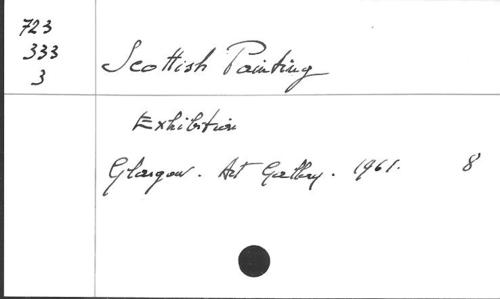 723
333
3
Scottish Painting
Exhibition
Glasgow. Art Gallery. 1961. 8